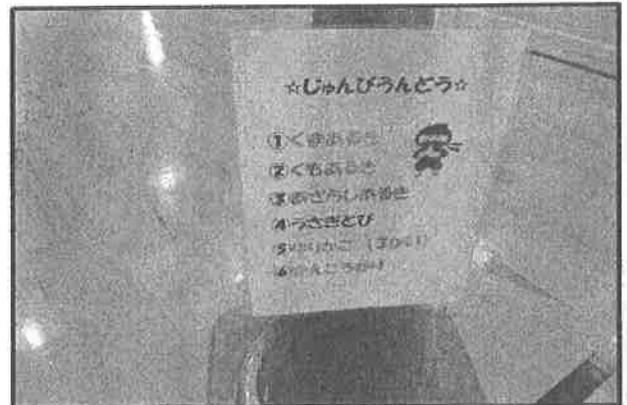 ☆じゅんびうんどう☆
①くまあるき
②くもあるき
③あざらしあるき
④うさぎとび
⑤ゆりかご(3かい)
⑥